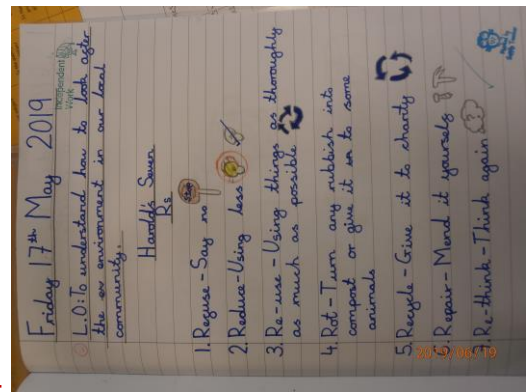 Friday 17th May 2019
L.O: To understand how to look after
the ev environment in our local
community.
Independent
Work
Harold's Seven
Rs
1. Refuse - Say no
2. Reduce - Using less
3. Re-use - Using things as thoroughly
as much as possible
4. Rot - Turn any rubbish into
compost or give it to some
animals
5. Recycle - Give it to charity
6. Repair - Mend it yourselfs
7. Re-think - Think again
2019/06/19